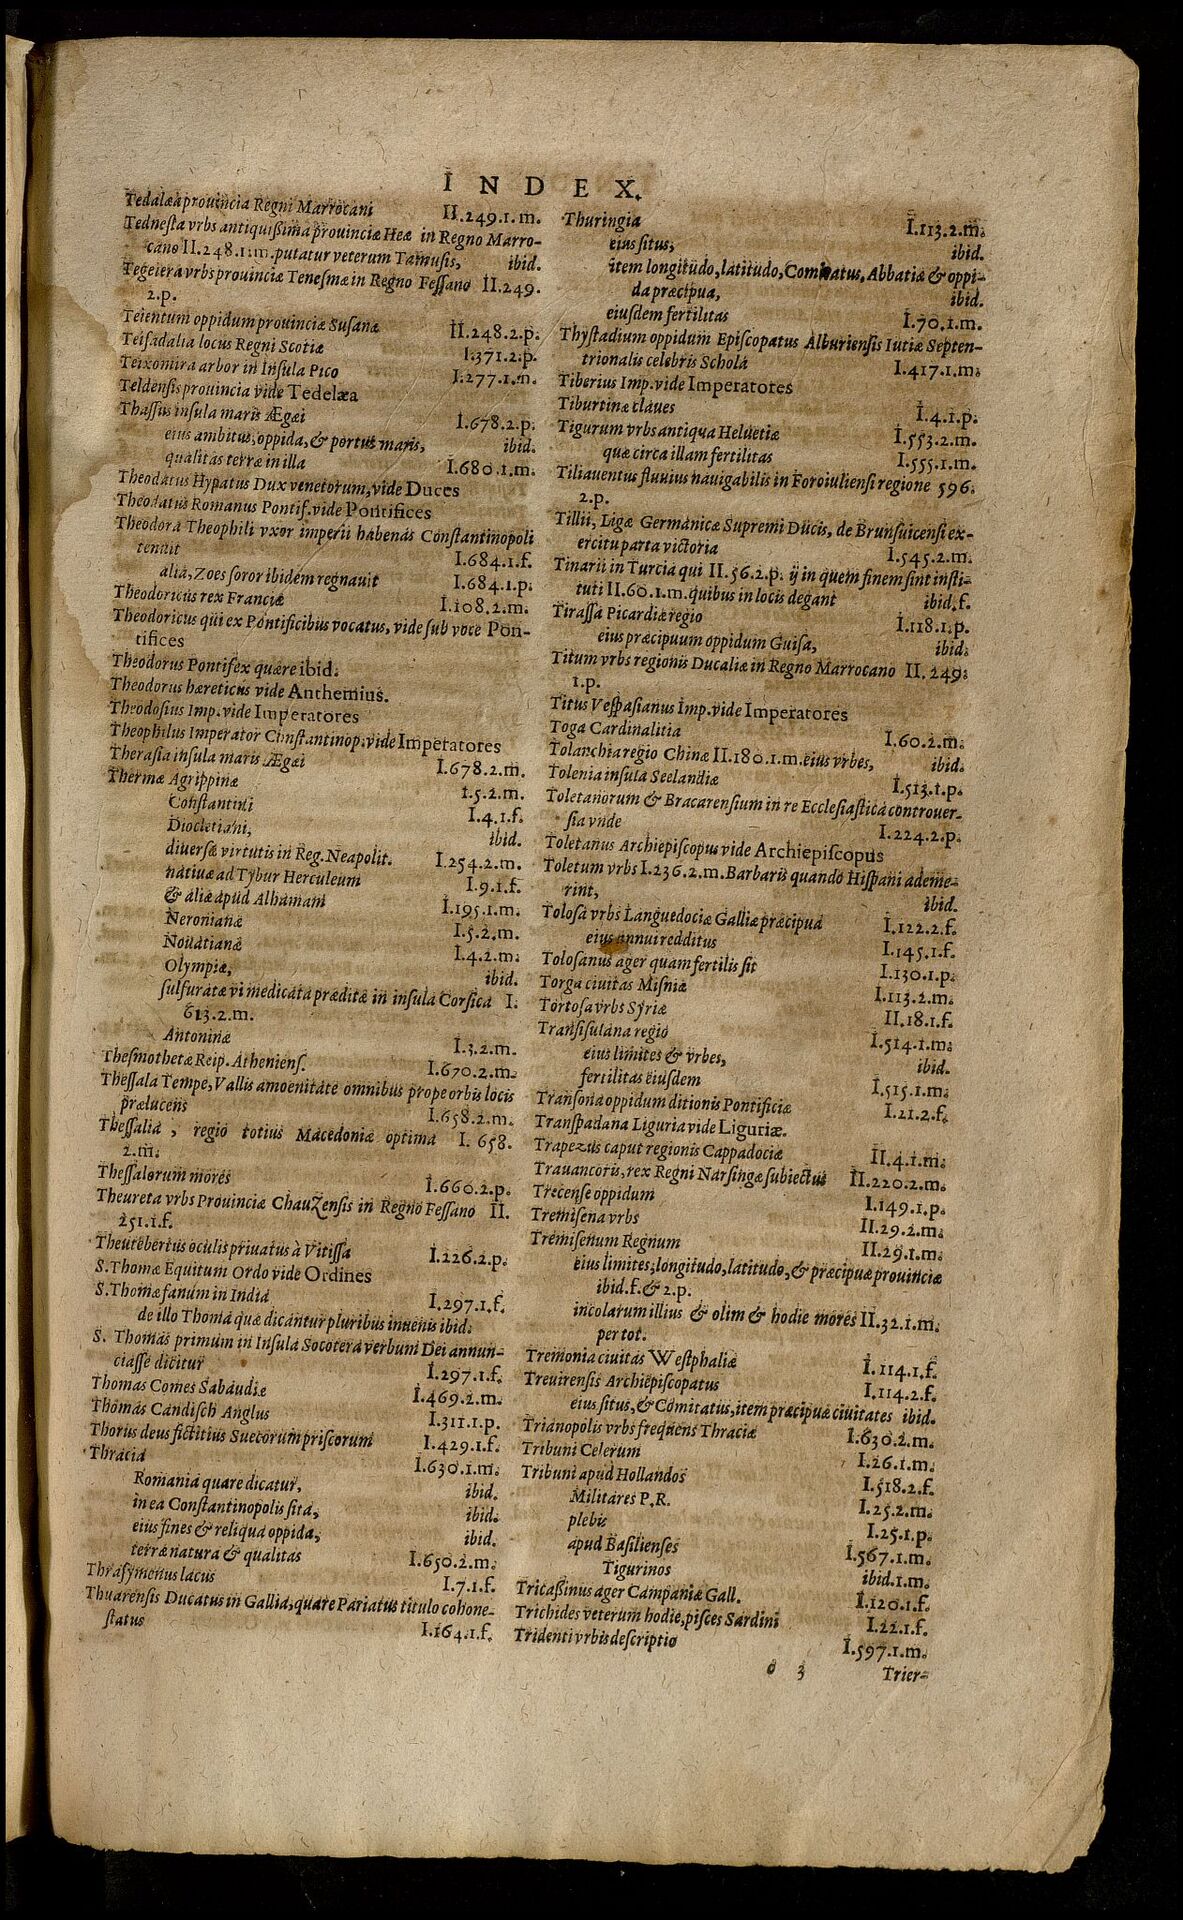 INDEX.
Tedalæa provincia Regni Marrocani II.249.1.m.
Tednesta vrbs antiquißima provinciæ Heæ in Regno Marro-
cano II.248.1.m. putatur veterum Tamusis, ibid.
Tegeiera vrbs provinciæ Tenesmæ in Regno Fessano II.249.
2.p.
Teientum oppidum provinciæ Susanæ II.248.2.p.
Teisadalia locus Regni Scotiæ I.371.2.p.
Teixomira arbor in Insula Pico I.277.1.m.
Teldensis provincia vide Tedelæa
Thassus insula maris Ægæi I.678.2.p.
eius ambitus, oppida, & portus maris, ibid.
qualitas terræ in illa I.680.1.m.
Theodatus Hypatus Dux venetorum, vide Duces
Theodatus Romanus Pontif. vide Pontifices
Theodora Theophili vxor imperii habenas Constantinopoli
tenuit I.684.1.f.
alia, Zoes soror ibidem regnauit I.684.1.p.
Theodoricus rex Franciæ I.108.2.m.
Theodoricus qui ex Pontificibus vocatus, vide sub voce Pon-
tifices
Theodorus Pontifex quære ibid.
Theodorus hæreticus vide Anthemius.
Theodosius Imp. vide Imperatores
Theophilus Imperator Constantinop. vide Imperatores
Therasia insula maris Ægæi I.678.2.m.
Thermæ Agrippinæ I.5.2.m.
Constantini I.4.1.f.
Diocletiani, ibid.
diversæ virtutis in Reg. Neapolit. I.254.2.m.
natiuæ ad Tybur Herculeum I.9.1.f.
& aliæ apud Alhamam I.195.1.m.
Neronianæ I.5.2.m.
Nouatianæ I.4.2.m.
Olympiæ, ibid.
sulfuratæ vi medicata præditæ in insula Corsica I.
613.2.m.
Antoninæ I.3.2.m.
Thesmothetæ Reip. Atheniens. I.670.2.m.
Thessala Tempe, Vallis amoenitate omnibus prope orbis locis
prælucens I.658.2.m.
Thessalia, regio totius Macedoniæ optima I. 658.
2.m.
Thessalorum mores I.660.2.p.
Theureta vrbs Provinciæ Chauzensis in Regno Fessano II.
251.1.f.
Theutebertus oculis priuatus à Vitissa I.226.2.p.
S. Thomæ Equitum Ordo vide Ordines
S. Thomæ fanum in India I.297.1.f.
de illo Thoma quæ dicantur pluribus inuenis ibid.
S. Thomas primum in Insula Socotera verbum Dei annun-
ciasse dicitur I.297.1.f.
Thomas Comes Sabaudiæ I.469.2.m.
Thomas Candisch Anglus I.311.1.p.
Thorus deus fictitius Suecorum priscorum I.429.1.f.
Thracia I.630.1.m.
Romania quare dicatur, ibid.
in ea Constantinopolis sita, ibid.
eius fines & reliqua oppida, ibid.
terræ natura & qualitas I.650.2.m.
Thrasymenus lacus I.7.1.f.
Thuarensis Ducatus in Gallia, quare Pariatus titulo cohone-
status I.164.1.f.
Thuringia I.113.2.m.
eius situs, ibid.
item longitudo, latitudo, Comitatus, Abbatiæ & oppi-
da præcipua, ibid.
eiusdem fertilitas I.70.1.m.
Thystadium oppidum Episcopatus Alburiensis Iutiæ Septen-
trionalis celebris Schola I.417.1.m.
Tiberius Imp. vide Imperatores
Tiburtinæ claues I.4.1.p.
Tigurum vrbs antiqua Helvetiæ I.553.2.m.
quæ circa illam fertilitas I.555.1.m.
Tiliauentus fluuius nauigabilis in Foroiuliensi regione 596.
2.p.
Tillii, Ligæ Germanicæ Supremi Ducis, de Brunsuicensi ex-
ercitu parta victoria I.545.2.m.
Tinarii in Turcia qui II.56.2.p. ij in quem finem sint insti-
tuti II.60.1.m. quibus in locis degant ibid.f.
Tirassa Picardiæ regio I.118.1.p.
eius præcipuum oppidum Guisa, ibid.
Titum vrbs regionis Ducaliæ in Regno Marrocano II. 249.
1.p.
Titus Vespasianus Imp. vide Imperatores
Toga Cardinalitia I.60.2.m.
Tolanchia regio Chinæ II.180.1.m. eius vrbes, ibid.
Tolenia insula Seelandiæ I.513.1.p.
Toletanorum & Bracarensium in re Ecclesiastica controver-
sia vnde I.224.2.p.
Toletanus Archiepiscopus vide Archiepiscopus
Toletum vrbs I.236.2.m. Barbaris quando Hispani ademe-
rint, ibid.
Tolosa vrbs Languedociæ Galliæ præcipua I.122.2.f.
eius annui redditus I.145.1.f.
Tolosanus ager quam fertilis sit I.130.1.p.
Torga ciuitas Misniæ I.113.2.m.
Tortosa vrbs Syriæ II.18.1.f.
Transisulana regio I.514.1.m.
eius limites & vrbes, ibid.
fertilitas eiusdem I.515.1.m.
Transona oppidum ditionis Pontificiæ I.21.2.f.
Transpadana Liguria vide Liguriæ.
Trapezus caput regionis Cappadociæ II.4.1.m.
Trauancoris, rex Regni Narsingæ subiectus II.220.2.m.
Trecense oppidum I.149.1.p.
Tremisena vrbs II.29.2.m.
Tremisenum Regnum II.29.1.m.
eius limites, longitudo, latitudo, & præcipuæ prouinciæ
ibid.f. & 2.p.
incolarum illius & olim & hodie mores II.32.1.m.
per tot.
Tremonia ciuitas Westphaliæ I.114.1.f.
Treuirensis Archiepiscopatus I.114.2.f.
eius situs, & Comitatus, item præcipuæ ciuitates ibid.
Trianopolis vrbs frequens Thraciæ I.630.2.m.
Tribuni Celerum I.26.1.m.
Tribuni apud Hollandos I.518.2.f.
Militares P.R. I.25.2.m.
plebis I.25.1.p.
apud Basilienses I.567.1.m.
Tigurinos ibid.1.m.
Tricaßinus ager Campaniæ Gall. I.120.1.f.
Trichides veterum hodie, pisces Sardini I.22.1.f.
Tridenti vrbis descriptio I.597.1.m.
o 3 Trier-